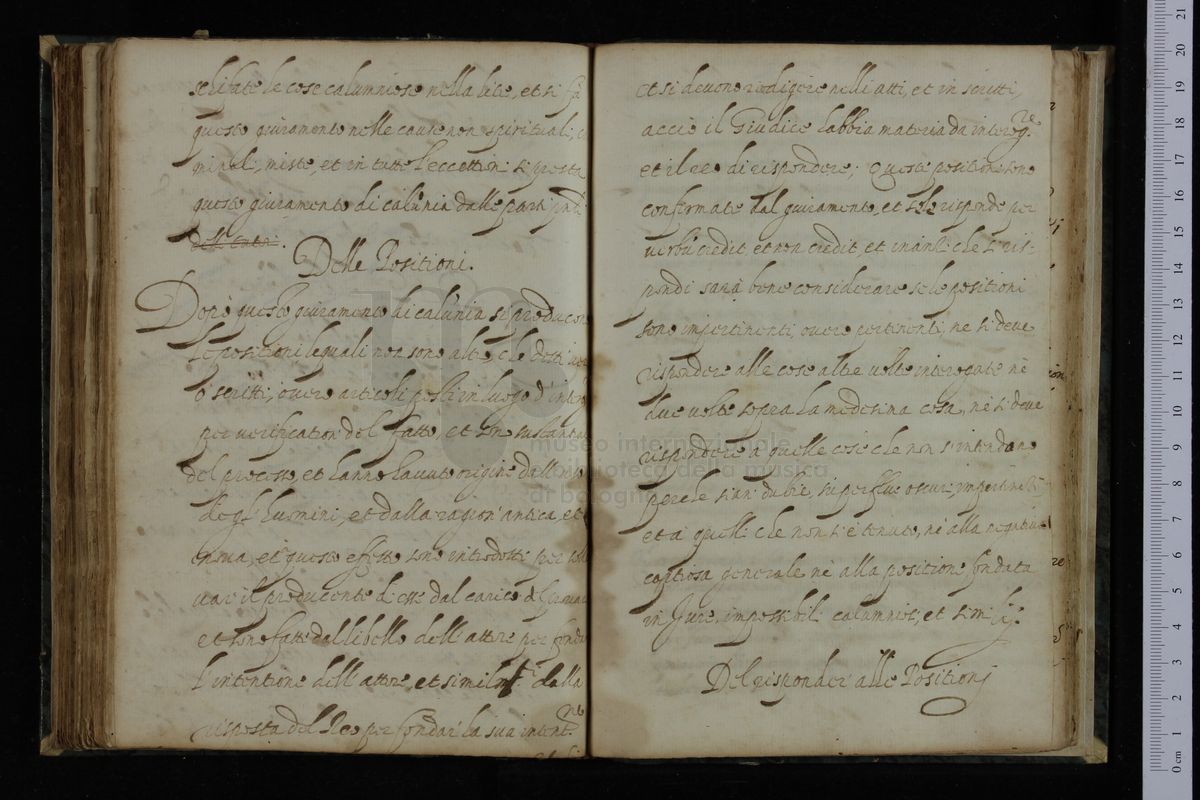 schifate le cose calumniose nella lite, et si fà
questo giuramento nelle cause non spirituali, c
minali, miste, et in tutte l'eccettioni si presta
questo giuramento di calunia dalle parti
Delle Positioni.
Dopò questo giuramento di calunia si producon
le positioni le quali non sono altro, che detti
ò scritti, overo articoli posti in luogo d'interog
per verification del fatto, et son sustantia
del processo, et hanno havuto origine dall'
degl'huomini, et dalla ragion' antica, et
et questo effetto sono introdotti per
var il producente di esse dal carico di provar
et sono fatti dal libello dell'attore per fondar
l'intentione dell'attore, et similmt. dalla
risposta del Reo per fondar la sua intentne.
et si devono redigere nelli atti, et in scritti,
acciò il Giudice habbia materia da interogre
et il reo di rispondere; Queste positioni sono
confirmate dal giuramento, et si le risponde per
verbu credit, et non credit, et inanzi che si ris-
pondi sarà bene considerare se le positioni
sono impertinenti, overo pertinenti, ne si deve
rispondere alle cose altre volte interogate nè
due volte sopra la medesima cosa, nè si deve
rispondere a quelle cose che non s'intendano
perche sian' dubie, superflue oscure, impertinenti
et a quelle che non si è tenuto, nè alla negativa
captiosa generale nè alla positione fondata
in Jure, impossibili calumniose, et simili.
Del risponder' alle Positioni
museo internazionale
e biblioteca della musica
di bologna
0 cm 1 2 3 4 5 6 7 8 9 10 11 12 13 14 15 16 17 18 19 20 21